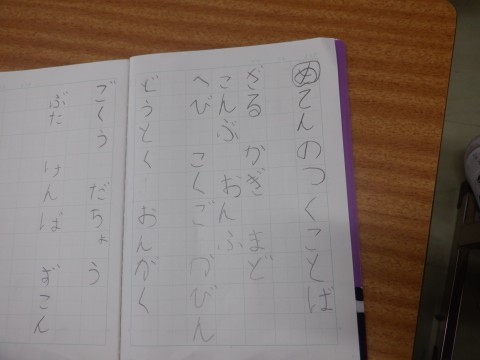 め てんのつくことば
ざる かぎ まど
こんぶ おんぷ
へび こくご かびん
どうとく おんがく
ごくう だちょう
ぶた けんば ずこん